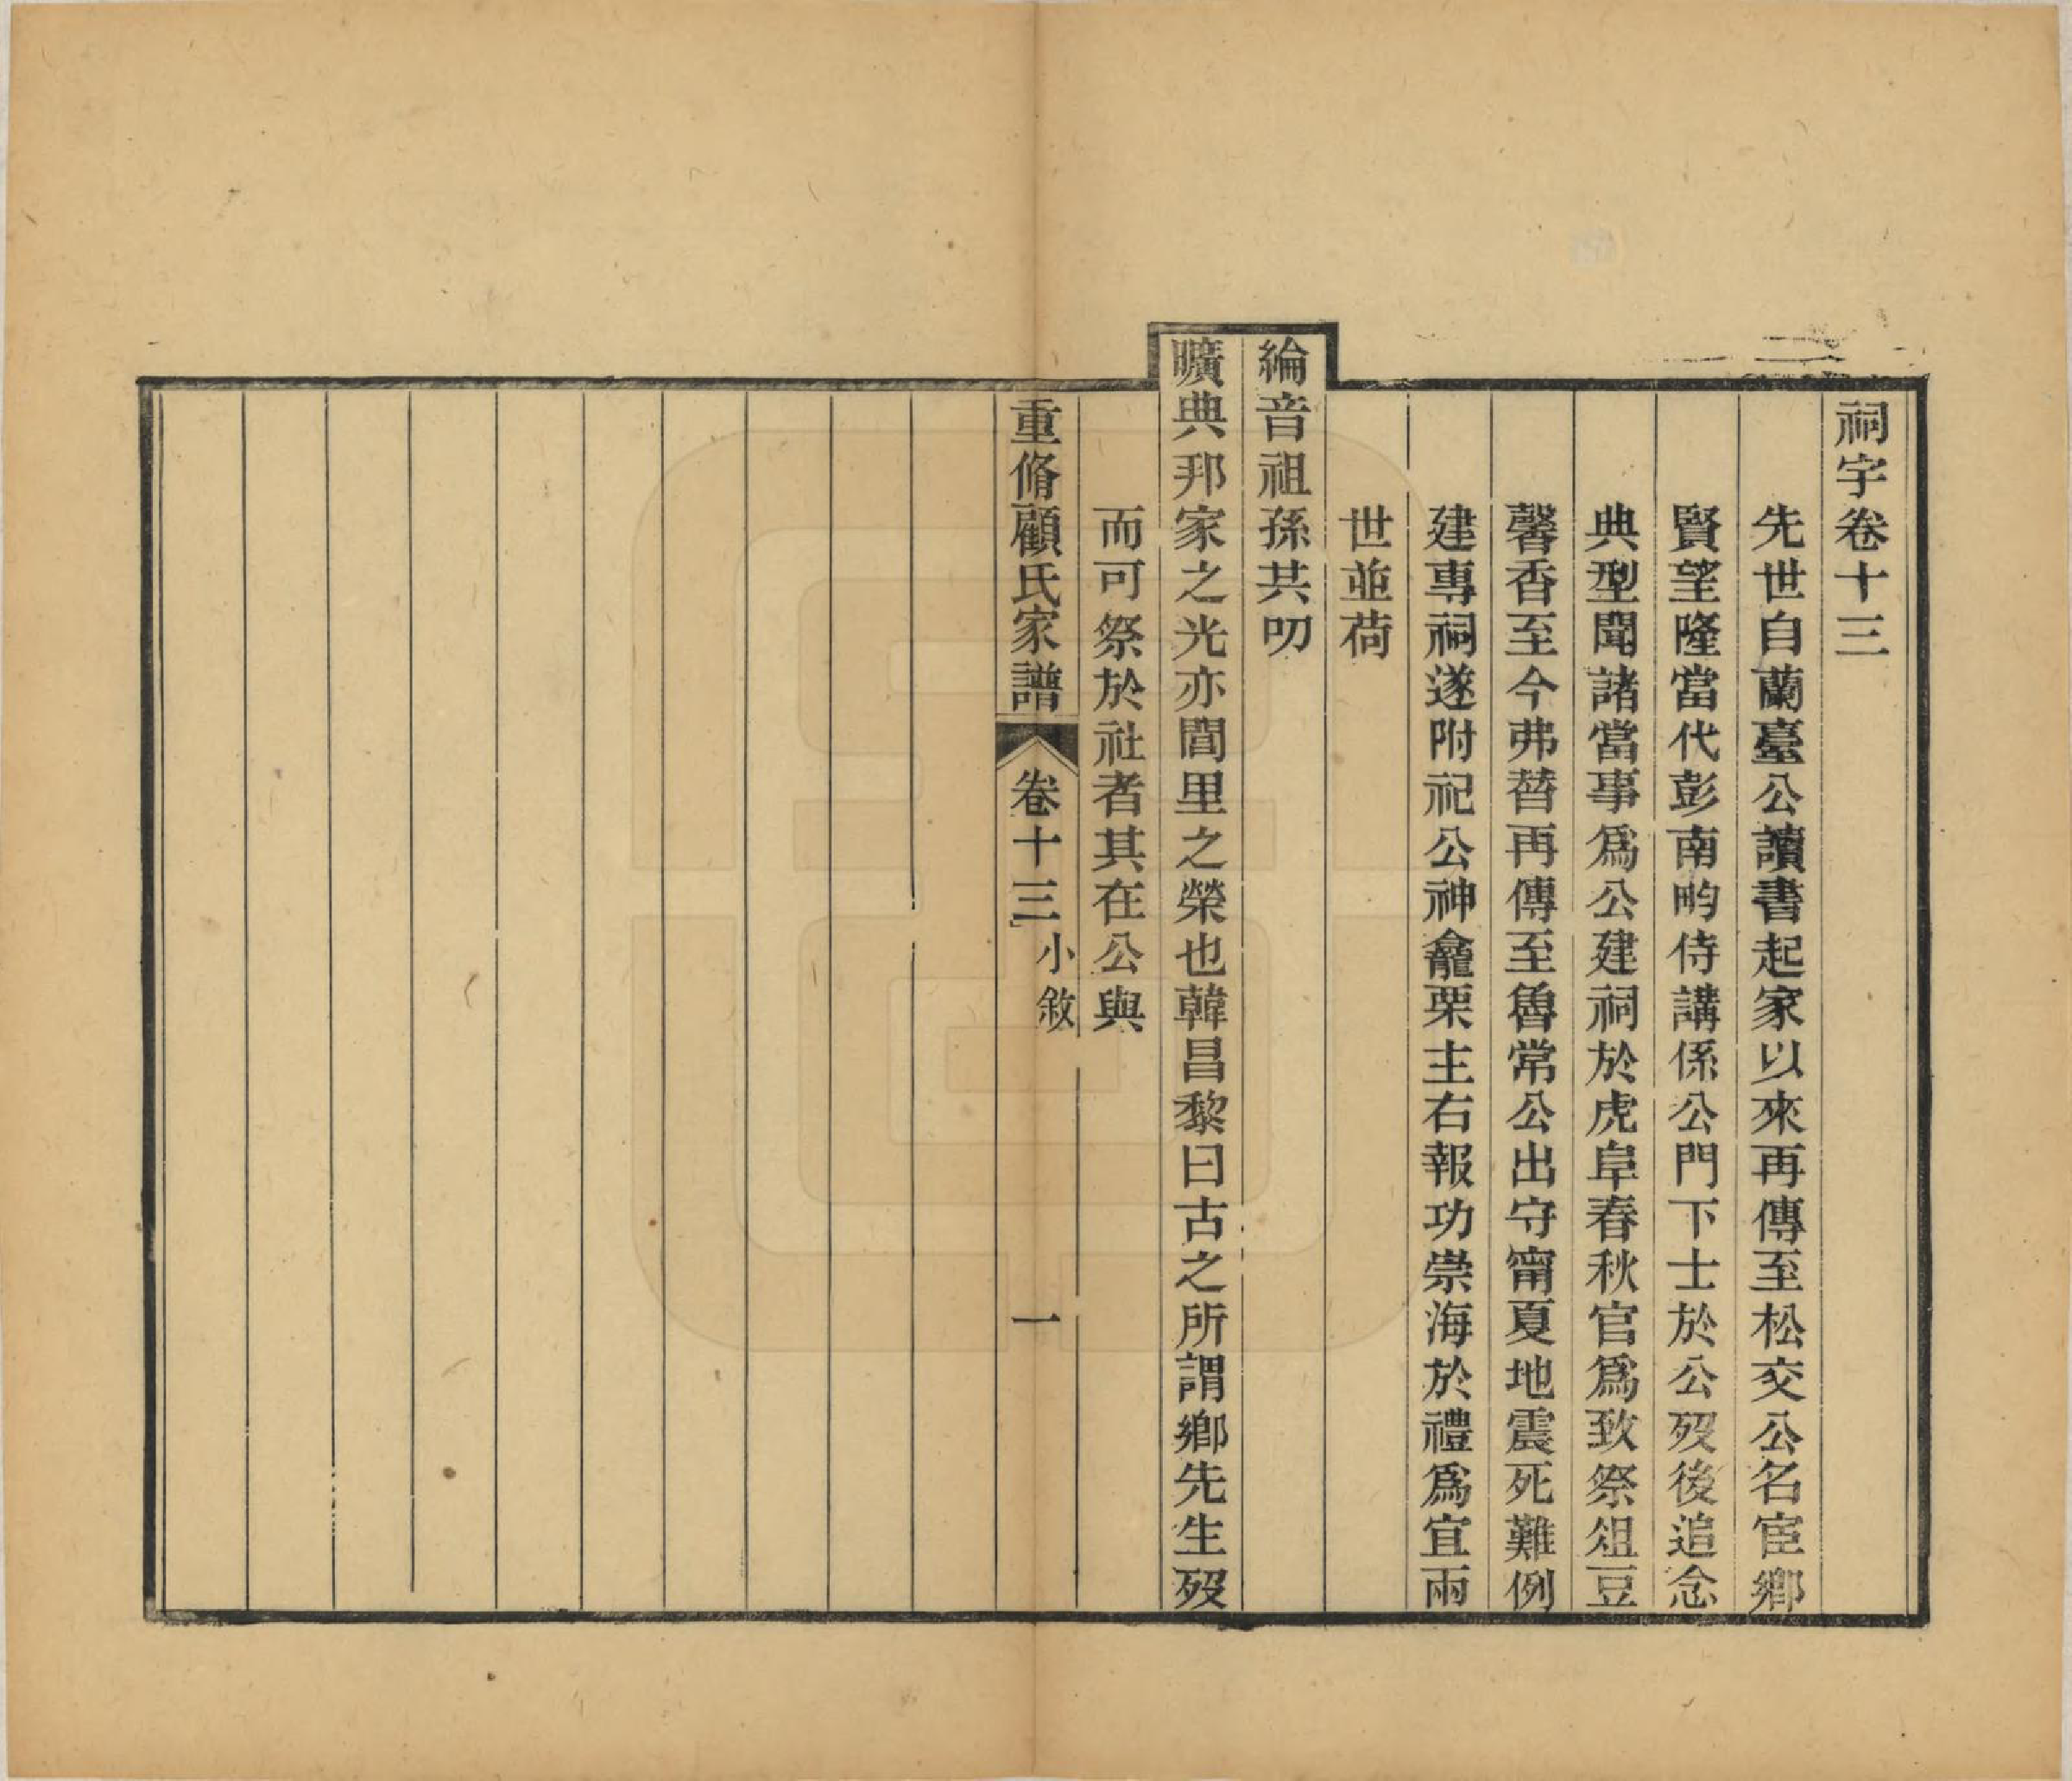 祠宇卷十三
先世自蘭臺公讀書起家以來再傳至松交公名宦鄉
賢望隆當代彭南畇侍講係公門下士於公歿後追念
典型聞諸當事爲公建祠於虎阜春秋官爲致祭俎豆
馨香至今弗替再傳至魯常公出守甯夏地震死難例
建專祠遂附祀公神龕栗主右報功崇海於禮爲宜兩
世並荷
綸音祖孫共叨
曠典邦家之光亦閭里之榮也韓昌黎曰古之所謂鄉先生歿
而可祭於社者其在公與
重脩顧氏家譜 卷十三 小敘 一